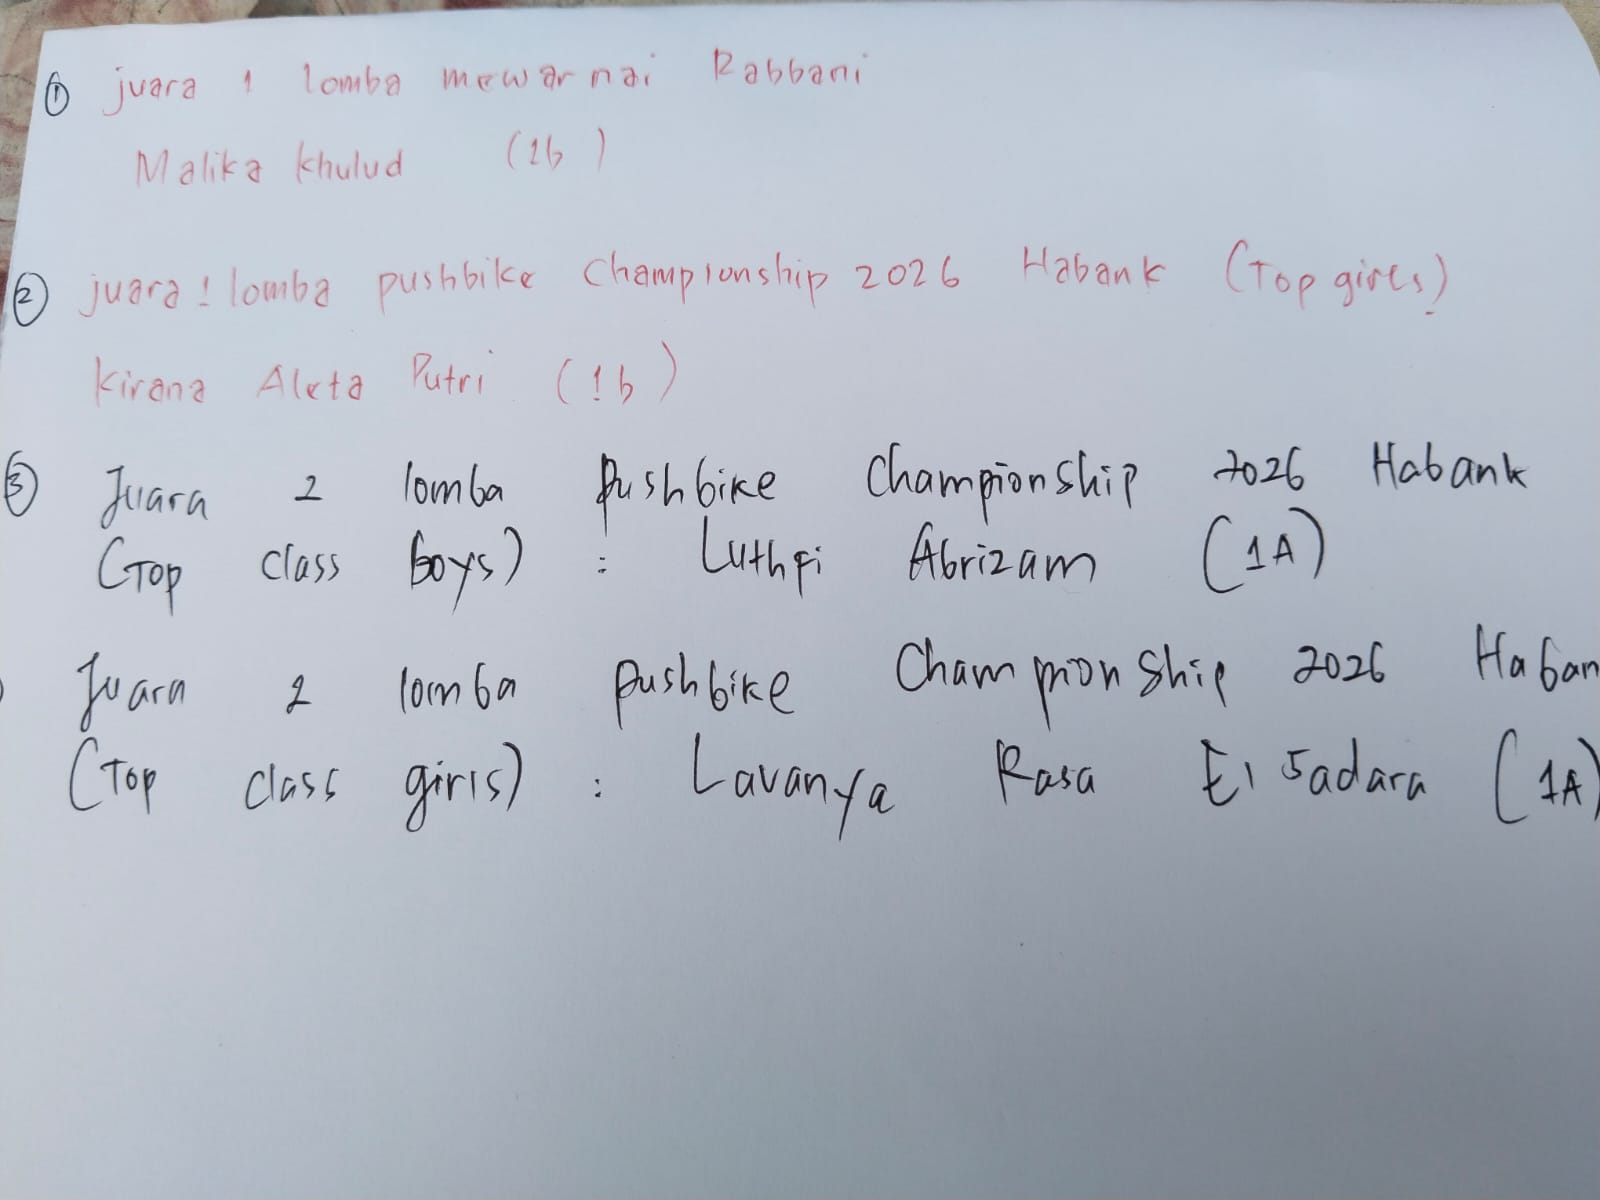 ① juara 1 lomba mewarnai Rabbani
Malika khulud (1b)
② juara 1 lomba pushbike Championship 2026 Habank (Top girls)
kirana Aleta Putri (1b)
③ Juara 2 lomba pushbike Championship 2026 Habank
(Top class boys) : Luthfi Abrizam (1A)
Juara 2 lomba pushbike Championship 2026 Haban
(Top class girls) : Lavanya Rasa El Sadara (1A)